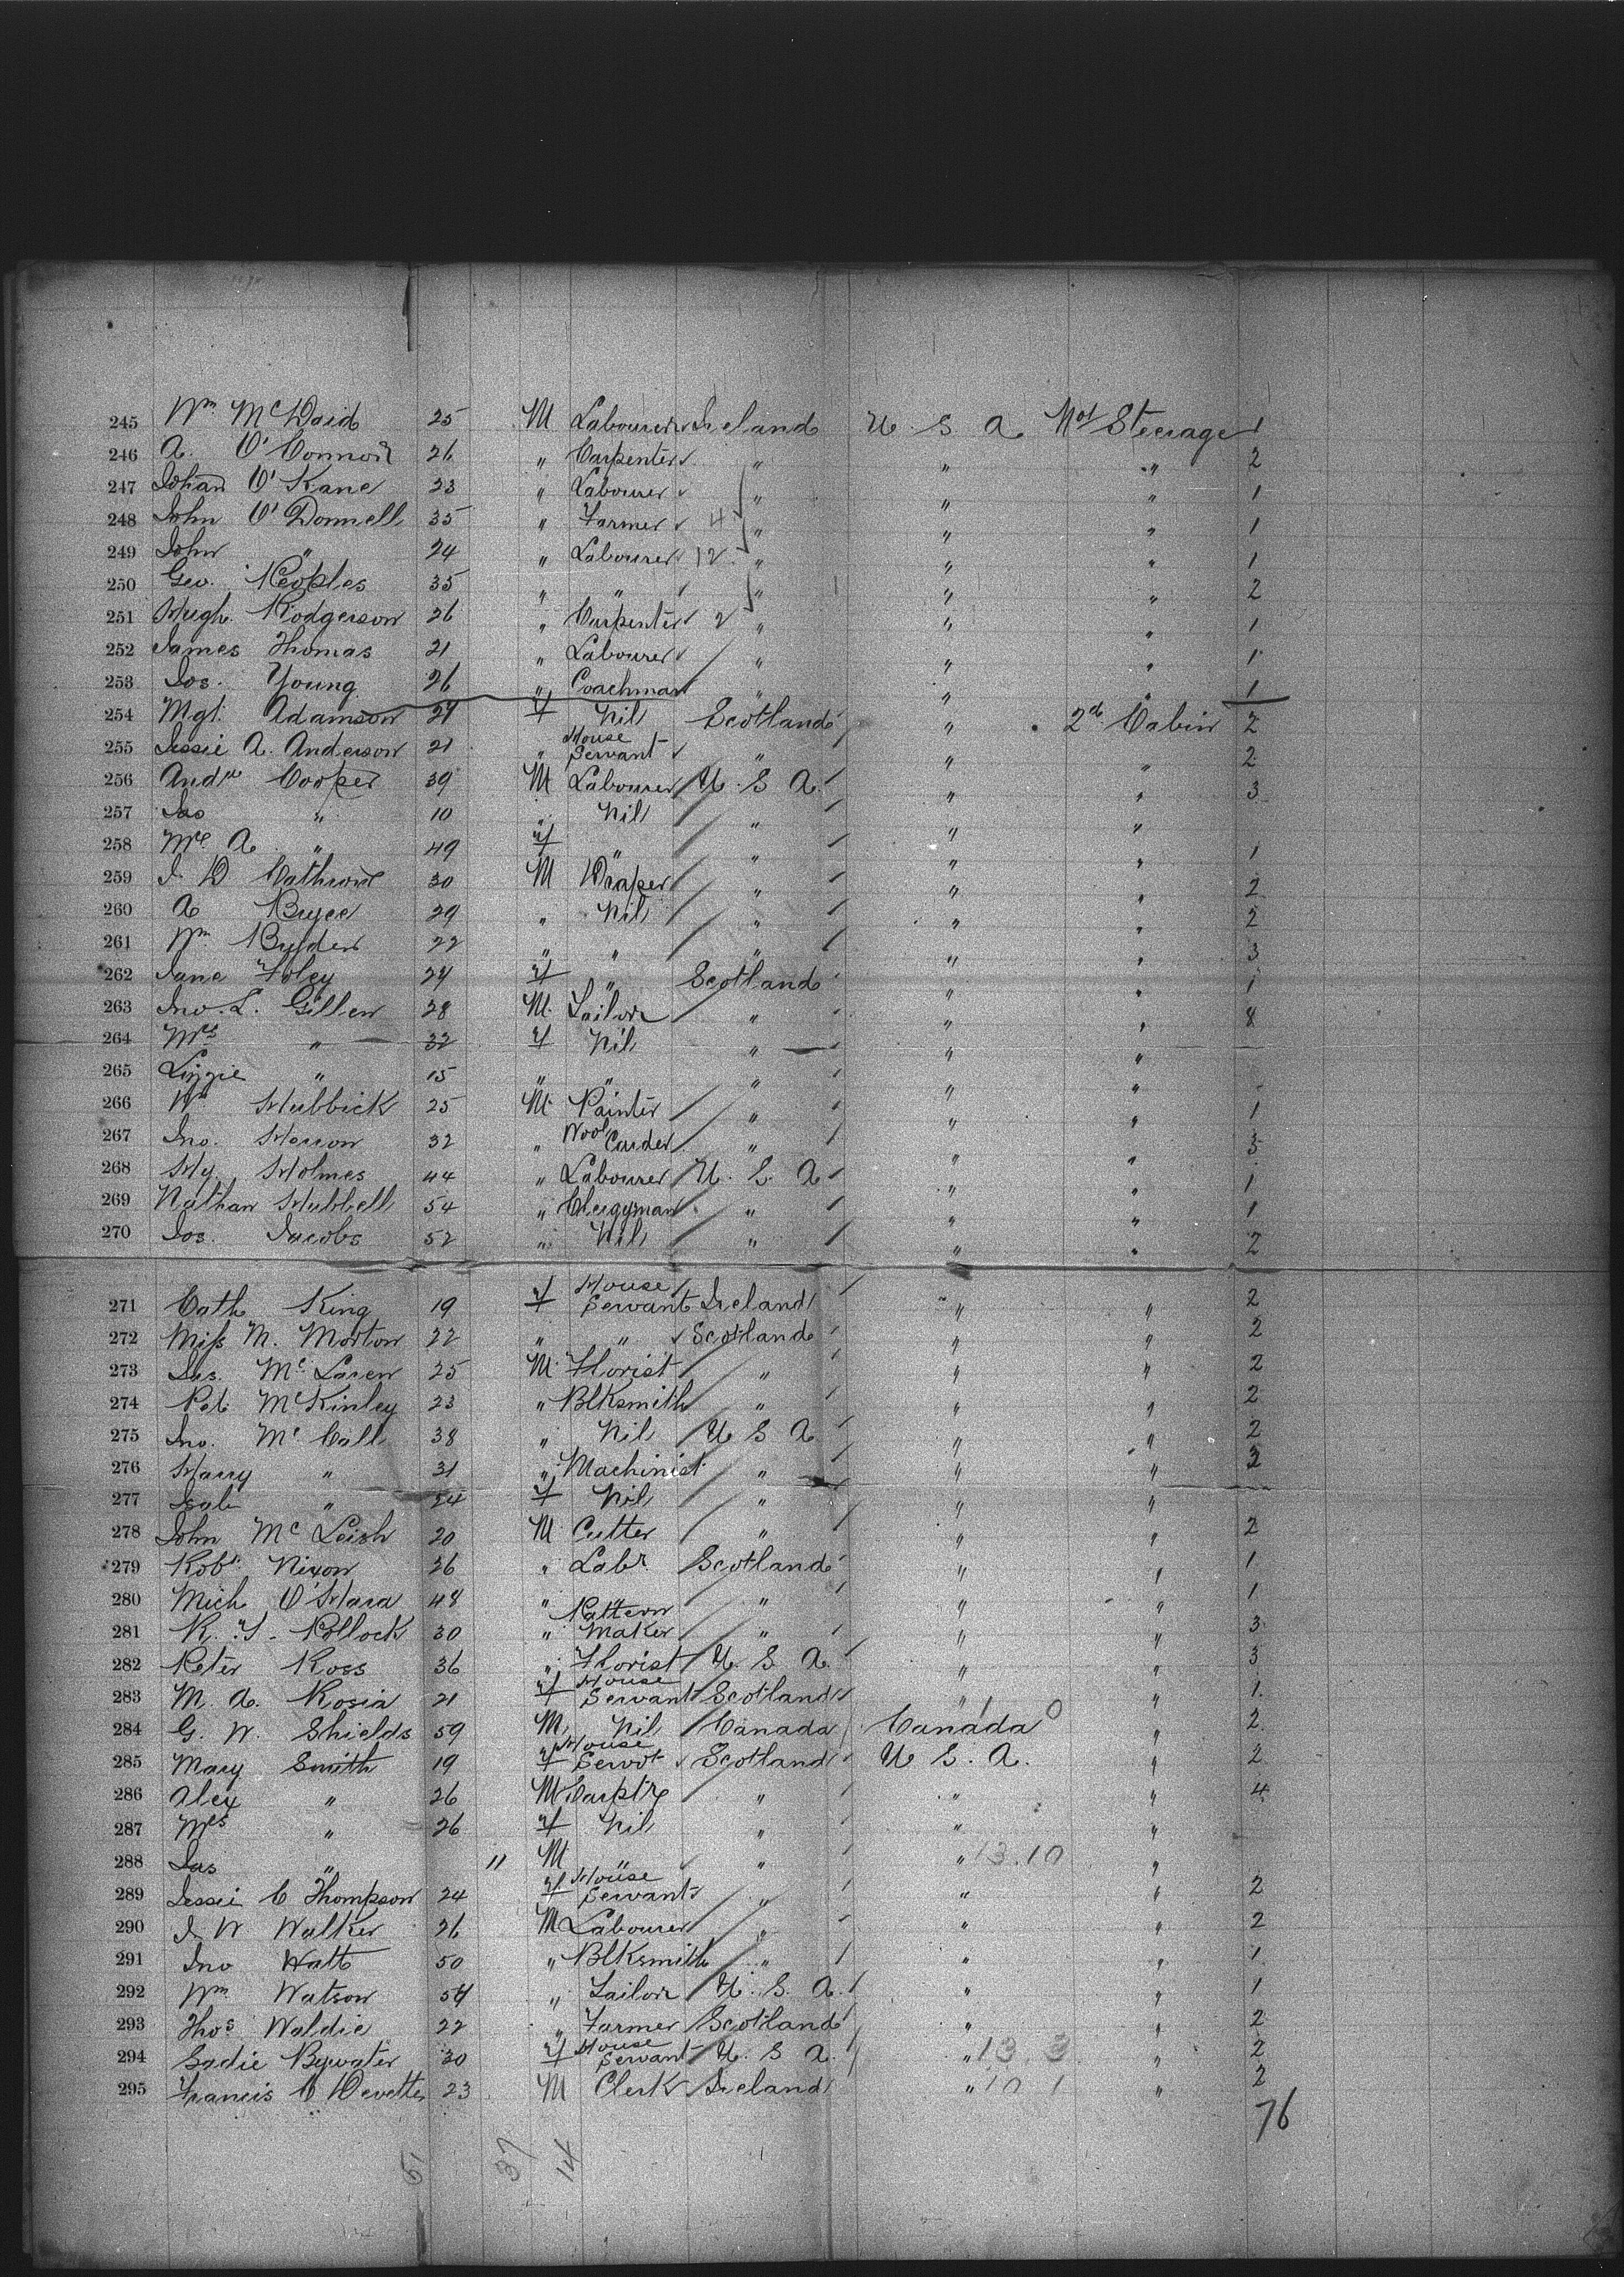 245 Wm McDaid 25 M Labourer Ireland U. S. A. Not Steerage 1
246 A. O'Connor 26 " Carpenter " " " 2
247 Johan O'Kane 23 " Labourer " " " 1
248 John O'Donnell 35 " Farmer 4 " " " 1
249 John " 24 " Labourer 12 " " " 1
250 Geo. Peoples 35 " " " " " 2
251 Hugh Rodgerson 26 " Carpenter 2 " " " 1
252 James Thomas 21 " Labourer " " " 1
253 Jos. Young 26 " Coachman " " " 1
254 Mgt. Adamson 24 F Nil Scotland " 2d Cabin 2
255 Jessie A. Anderson 21 " House Servant " " " 2
256 Andw Cooper 39 M Labourer U. S. A. " " 3
257 Jas " 10 " Nil " " "
258 Mrs A " 49 F " " " " 1
259 J D 30 M Draper " " " 2
260 A Bryce 29 " Nil " " " 2
261 Wm Byden 22 " " " " " 3
262 Jane Foley 24 F " Scotland " " 1
263 Jno. L. Gillen 28 M. Tailor " " " 8
264 Mrs " 32 F Nil " " "
265 Lizzie " 15 " " " " "
266 Wm Hubbick 25 M. Painter " " " 1
267 Jno. Herron 32 " Wool Carder " " " 3
268 Hy. Holmes 44 " Labourer U. S. A. " " 1
269 Nathan Hubbell 54 " Clergyman " " " 1
270 Jos. Jacobs 52 " Nil " " " 2
271 Cath King 19 F House Servant Ireland " " 2
272 Miss M. Morton 22 " " Scotland " " 2
273 Jas. McLaren 25 M. Florist " " " 2
274 Pet. McKinley 23 " Blksmith " " " 2
275 Jno. McCall 38 " Nil U. S. A. " " 2
276 Harry " 31 " Machinist " " " 3
277 Isab " 24 F Nil " " "
278 John McLeish 20 M. Cutter " " " 2
279 Robt. Nixon 26 " Labr Scotland " " 1
280 Mich O'Hara 48 " " " " " 1
281 R. Y. Pollock 30 " Pattern Maker " " " 3
282 Peter Ross 36 " Florist U. S. A. " " 3
283 M. A. Rosia 21 F House Servant Scotland " " 1.
284 G. W. Shields 59 M Nil Canada Canada " 2
285 Mary Smith 19 F House Servt Scotland U. S. A. " 2
286 Alex " 26 M Carptr " " " 4
287 Mrs " 26 F Nil " " "
288 Jas " 11 M " " " 13.10 "
289 Jessie C Thompson 24 F House Servant " " " 2
290 J W Walker 26 M Labourer " " " 2
291 Jno Watt 50 " Blksmith " " " 1
292 Wm Watson 54 " Tailor U. S. A. " " 1
293 Thos Waldie 22 " Farmer Scotland " " 2
294 Sadie Bywater 30 F House Servant U. S. A. " 13.3 " 2
295 Francis 23 M Clerk Ireland " 10 1 " 2
76
51 37 14